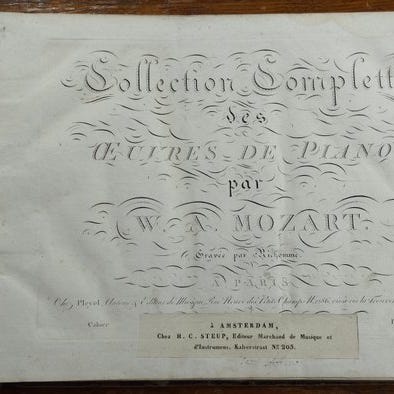 Collection Complett
des
ŒUVRES DE PIANO
par
W. A. MOZART.
Gravée par Richomme
A PARIS
Chez Pleyel, Auteur & Editeur de Musique, Rue Neuve des Petits Champs
Cahier
à AMSTERDAM,
Chez H. C. STEUP, Editeur Marchand de Musique et
d'Instrumens. Kalverstraat No. 205.